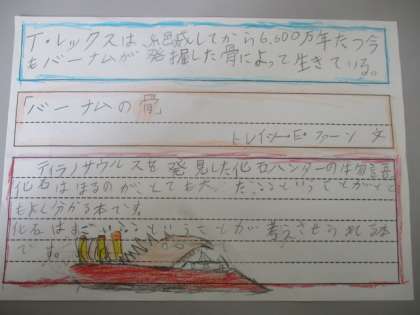 T・レックスは、絶滅してから6,500万年たつ今
もバーナムが発掘した骨によって生きている。
「バーナムの骨
トレイシー・E・ファーン 文
ティラノサウルスを発見した化石ハンターの
化石はほるのが、とても大
も良く分かる本です。
化石は ということが 考えさせられる本
です。